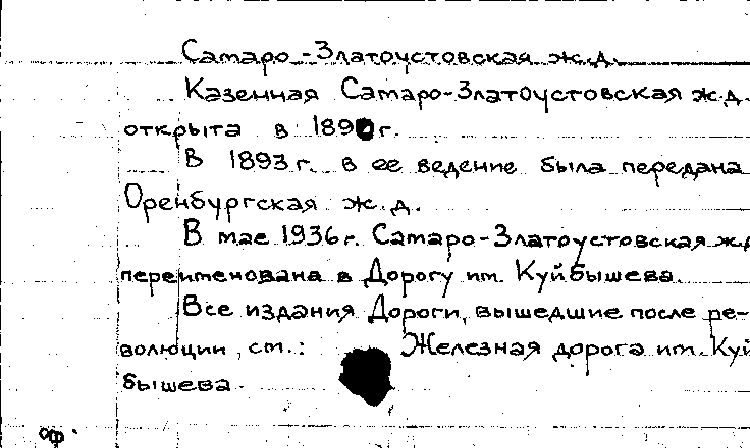 Самаро-Златоустовская ж.д.
Казенная Самаро-Златоустовская ж.д.
открыта в 1890 г.
В 1893 г. в ее ведение была передана
Оренбургская ж.д.
В мае 1936 г. Самаро-Златоустовская ж.д
переименована в Дорогу им. Куйбышева.
Все издания Дороги, вышедшие после ре-
волюции, см.: Железная дорога им. Куй
бышева.
оф